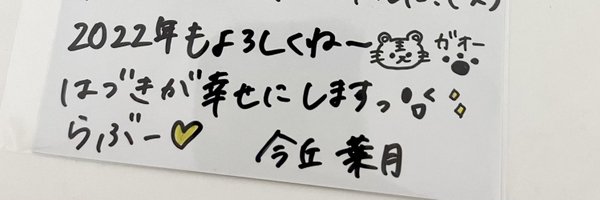 2022年もよろしくね〜 ガオー
はづきが幸せにしますっ
らぶー♡
今丘 葉月